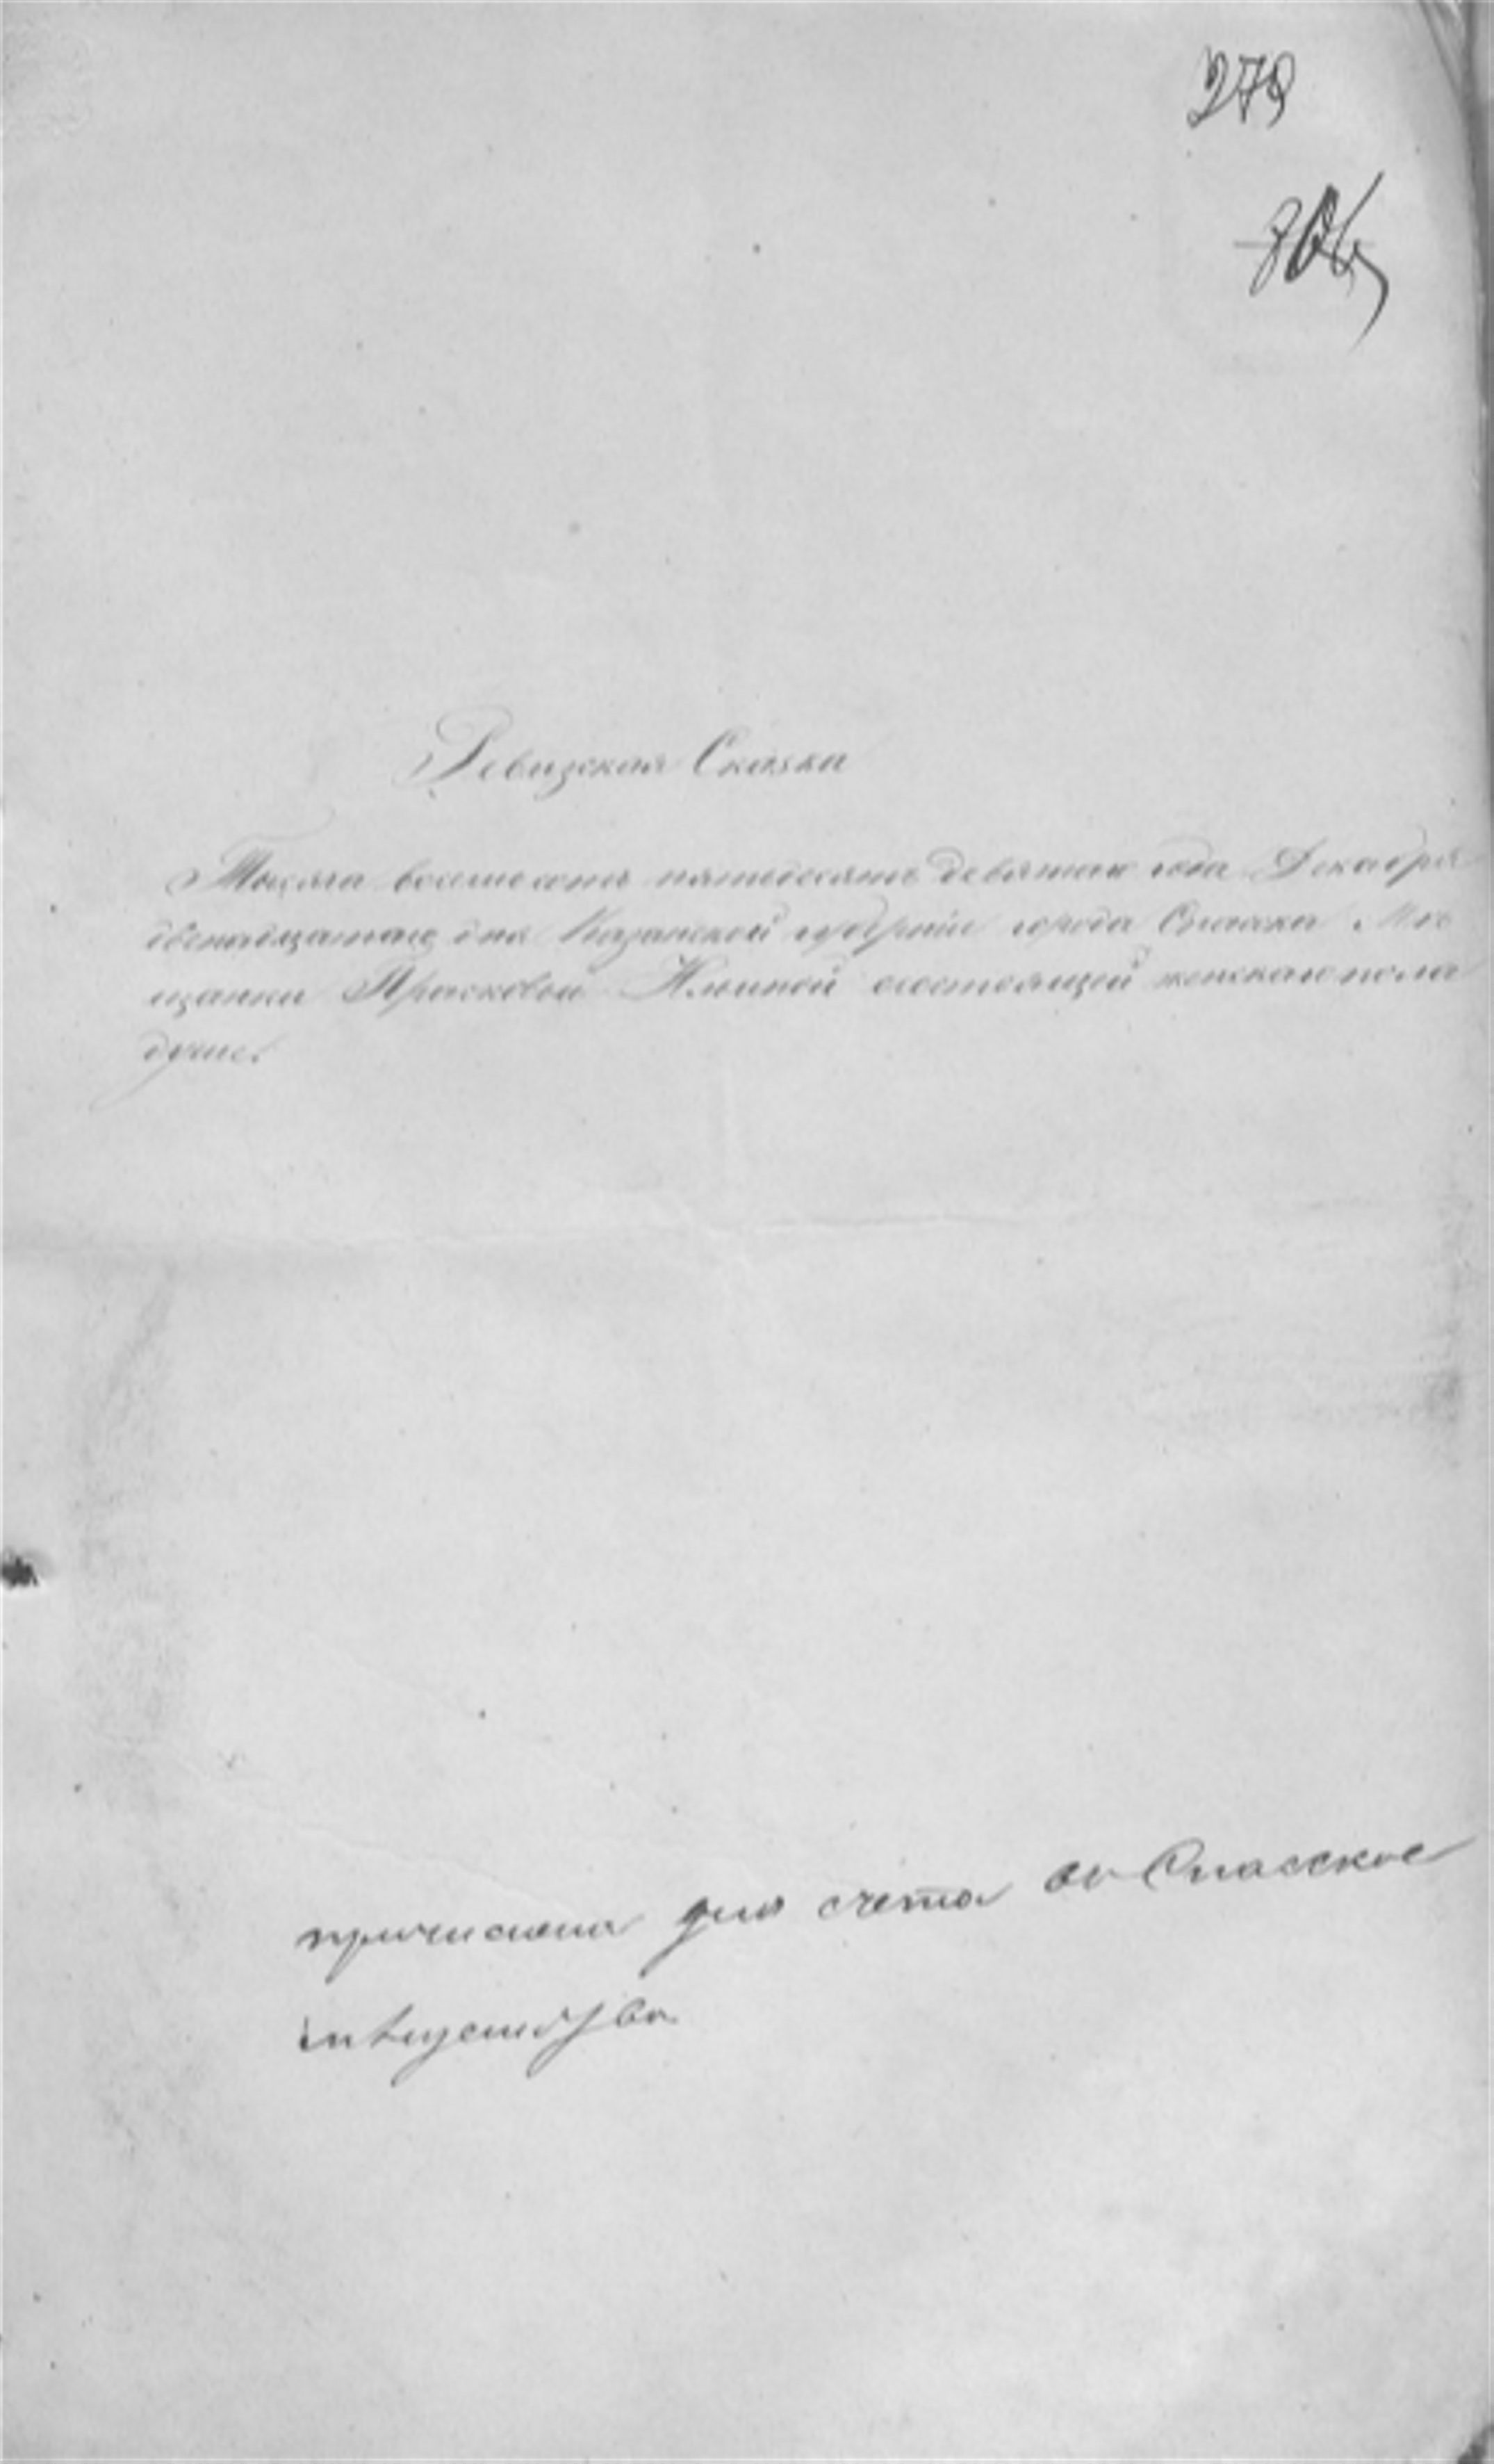 279
306
Ревизская Сказка
Тысяча восемьсотъ пятьдесятъ девятаго года Декабря
двенадцатаго дня Казанской губернiи города Спаска Ме
щанки Прасковьи Ильиной состоящей женскаго пола
душе.
причислена для счета въ Спасское
мѣщанство